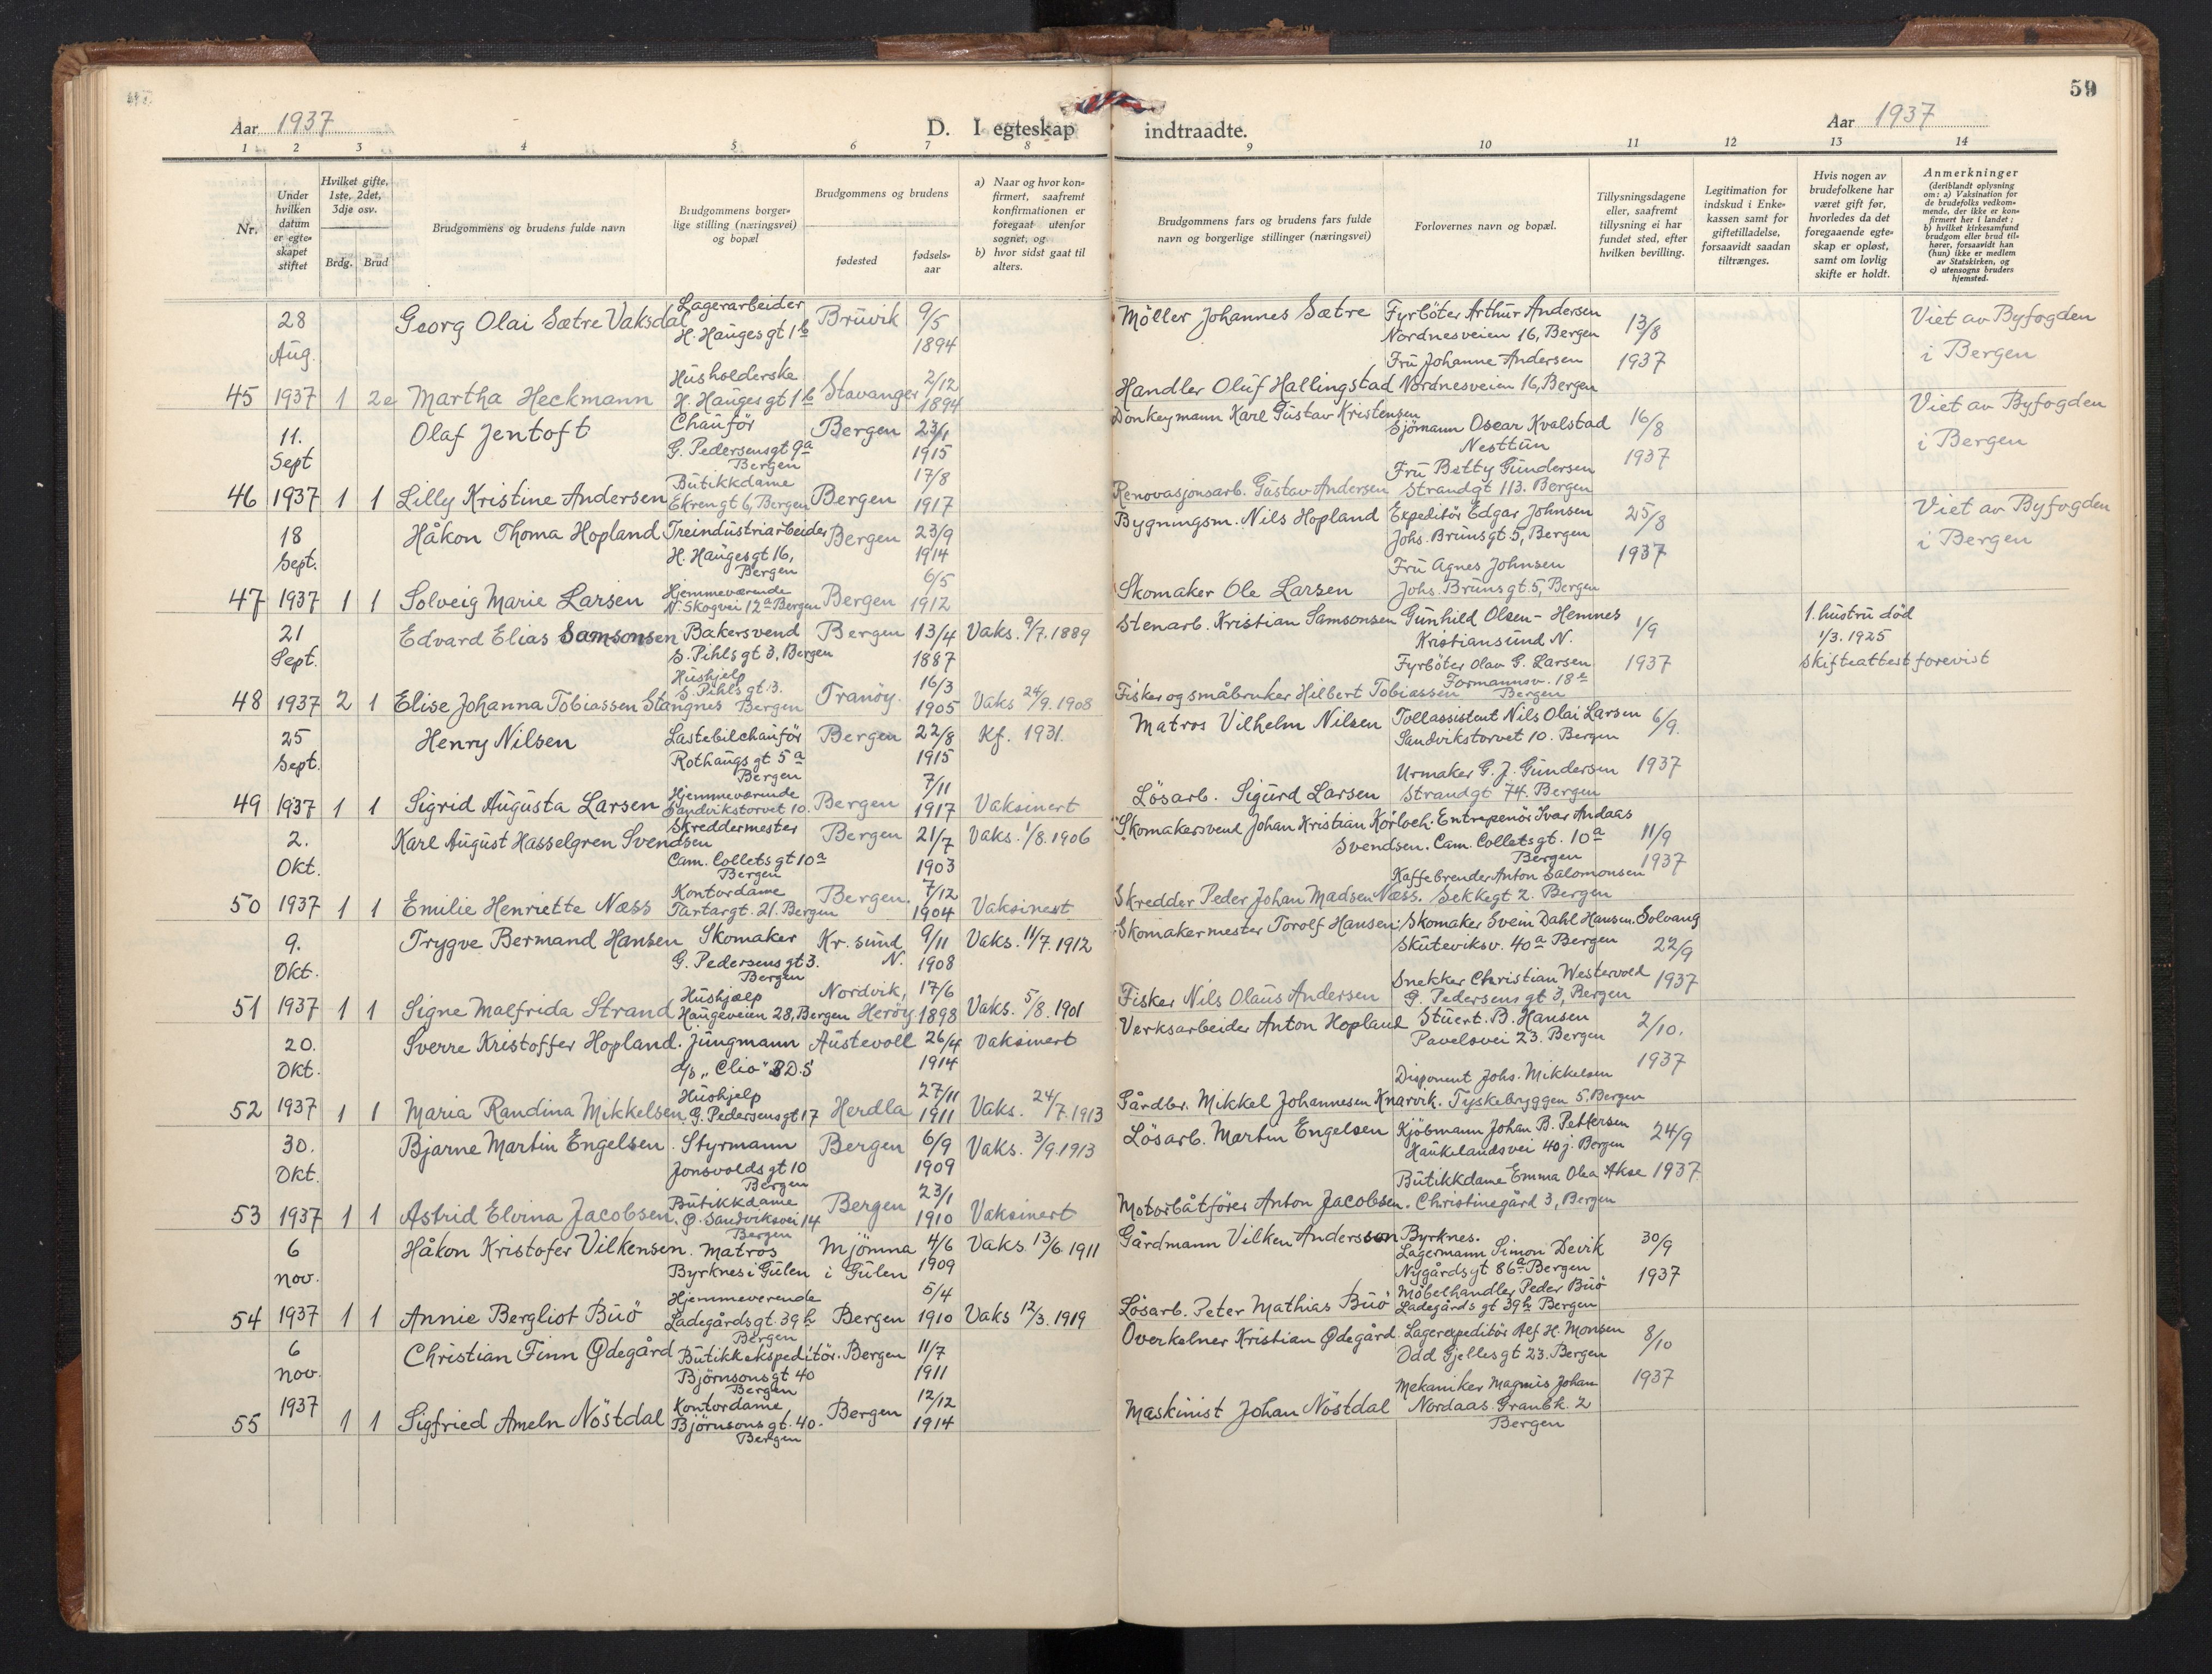 59
Aar 1937
D. I egteskap indtraadte.
Aar 1937
1 2 3 4 5 6 7 8 9 10 11 12 13 14
Nr.
Under hvilken datum er egte-skapet stiftet
Hvilket gifte, 1ste, 2det, 3dje osv.
Brdg. Brud
Brudgommens og brudens fulde navn
Brudgommens borger-lige stilling (næringsvei) og bopæl
Brudgommens og brudens
fødested
fødsels-aar
a) Naar og hvor kon-firmert, saafremt konfirmationen er foregaat utenfor sognet, og
b) hvor sidst gaat til alters.
Brudgommens fars og brudens fars fulde navn og borgerlige stillinger (næringsvei)
Forlovernes navn og bopæl.
Tillysningsdagene eller, saafremt tillysning ei har fundet sted, efter hvilken bevilling.
Legitimation for indskud i Enke-kassen samt for giftetilladelse, forsaavidt saadan tiltrænges.
Hvis nogen av brudefolkene har været gift før, hvorledes da det foregaaende egte-skap er opløst, samt om lovlig skifte er holdt.
Anmerkninger (deriblandt oplysning om: a) Vaksination for de brudefolks vedkom-mende, der ikke er kon-firmert her i landet; b) hvilket kirkesamfund brudgom eller brud til-hører, forsaavidt han (hun) ikke er medlem av Statskirken, og c) utensogns bruders hjemsted.
45 28 Aug. 1937 1 2e
Georg Olai Sætre Vaksdal Lagerarbeider H. Hauges gt 1b Bruvik 9/5 1894
Møller Johannes Sætre Fyrböter Arthur Andersen Nordnesveien 16, Bergen 13/8 1937
Viet av Byfogden i Bergen
Martha Heckmann Husholderske H. Hauges gt 1b Stavanger 2/12 1894
Handler Oluf Hallingstad Fru Johanne Andersen Nordnesveien 16, Bergen
46 11. Sept 1937 1 1
Olaf Jentoft Chauför G. Pedersensgt 9a Bergen Bergen 23/1 1915
Donkeymann Karl Gustav Kristensen Sjömann Oscar Kvalstad Nesttun 16/8 1937
Viet av Byfogden i Bergen
Lilly Kristine Andersen Butikkdame Ekrengt 6, Bergen Bergen 17/8 1917
Renovasjonsarb. Gustav Andersen Fru Betty Gundersen Strandgt 113. Bergen
47 18 Sept. 1937 1 1
Håkon Thoma Hopland Treindustriarbeider H. Haugesgt 16, Bergen Bergen 23/9 1914
Bygningsm. Nils Hopland Expeditör Edgar Johnsen Johs. Brunsgt 5, Bergen 25/8 1937
Viet av Byfogden i Bergen
Solveig Marie Larsen Hjemmeværende N. Skogvei 12a Bergen Bergen 6/5 1912
Skomaker Ole Larsen Fru Agnes Johnsen Johs. Bruns gt. 5, Bergen
48 21 Sept. 1937 2 1
Edvard Elias Samsonsen Bakersvend S. Pihls gt 3, Bergen Bergen 13/4 1887 Vaks. 9/7. 1889
Stenarb. Kristian Samsonsen Gunhild Olsen - Hemnes Kristiansund N. 1/9 1937
1. hustru död 1/3. 1925 Skifteattest forevist
Elise Johanna Tobiassen Stangnes Hushjelp S. Pihls gt. 3. Bergen Tranöy. 16/3 1905 Vaks 24/9. 1908
Fisker og småbruker Hilbert Tobiassen Fyrböter Olav G. Larsen Formannsv. 18e Bergen
49 25 Sept. 1937 1 1
Henry Nilsen Lastebilchauför Rothaugs gt 5a Bergen Bergen 22/8 1915 Kf. 1931.
Matros Vilhelm Nilsen Tollassistent Nils Olai Larsen Sandvikstorvet 10. Bergen 6/9. 1937
Sigrid Augusta Larsen Hjemmeværende Sandvikstorvet 10. Bergen 7/11 1917 Vaksinert
Lösarb. Sigurd Larsen Urmaker G. J. Gundersen Strandgt 74. Bergen
50 2. Okt. 1937 1 1
Karl August Hasselgren Svendsen Skreddermester Cam. Collets gt 10a Bergen Bergen 21/7 1903 Vaks. 1/8. 1906
Skomakersvend Johan Kristian Körloch Svendsen. Entrepenör Ivar Andaas Cam. Collets gt. 10a Bergen 11/9 1937
Emilie Henriette Næss Kontordame Tartargt. 21. Bergen Bergen. 7/12 1904 Vaksinert
Skredder Peder Johan Madsen Næss. Kaffebrender Anton Salomonsen Sekkegt 2. Bergen
51 9. Okt. 1937 1 1
Trygve Bermand Hansen Skomaker G. Pedersens gt 3. Bergen Kr. sund N. 9/11 1908 Vaks. 11/7. 1912
Skomakermester Torolf Hansen; Skomaker Svein Dahl Hansen. Solvang Skuteviksv. 40a Bergen 22/9 1937
Signe Malfrida Strand Hushjælp Haugeveien 28, Bergen Nordvik, Heröy 17/6 1898 Vaks. 5/8. 1901
Fisker Nils Olaus Andersen Snekker Christian Westervold G. Pedersens gt 3, Bergen
52 20. Okt. 1937 1 1
Sverre Kristoffer Hopland. Jungmann d/s "Clio" B.D.S Austevoll 26/4 1914 Vaksinert
Verksarbeider Anton Hopland Stuert. B. Hansen Pavelsvei 23. Bergen 2/10. 1937
Maria Randina Mikkelsen Hushjelp G. Pedersensgt 17 Herdla 27/11 1911 Vaks. 24/7. 1913
Gårdbr. Mikkel Johannesen Knarvik. Disponent Johs. Mikkelsen Tyskebryggen 5. Bergen
53 30. Okt. 1937 1 1
Bjarne Martin Engelsen. Styrmann Jonsvolds gt 10 Bergen Bergen 6/9 1909 Vaks. 3/9. 1913
Lösarb. Martin Engelsen Kjöbmann Johan B. Pettersen Haukelandsvei 40 j. Bergen 24/9 1937.
Astrid Elvina Jacobsen. Butikkdame Ø. Sandviksvei 14 Bergen Bergen 23/1 1910 Vaksinert
Motorbåtförer Anton Jacobsen. Butikkdame Emma Olea Akse Christinegård 3, Bergen
54 6 nov. 1937 1 1
Håkon Kristofer Vilkensen. Matros Byrknes i Gulen Mjömna i Gulen 4/6 1909 Vaks 13/6 1911
Gårdmann Vilken Andersson Byrknes. Lagermann Simon Devik Nygårdsgt 86a Bergen 30/9 1937
Annie Bergliot Buö Hjemmeverende Ladegårdsgt. 39h Bergen Bergen 5/4 1910 Vaks 12/3. 1919
Lösarb. Peter Mathias Buö Möbelhandler Peder Buö Ladegårds gt 39h Bergen
55 6 nov. 1937 1 1
Christian Finn Ødegård Butikkekspeditör. Bjørnsons gt 40 Bergen Bergen 11/7 1911
Overkelner Kristian Ødegård. Lagerexpeditör Alf H. Monsen Odd Gjelles gt 23. Bergen 8/10 1937
Sigfried Ameln Nöstdal Kontordame Bjørnsons gt. 40. Bergen Bergen 12/12 1914
Maskinist Johan Nöstdal Mekaniker Magnus Johan Nordaas. Granbk. 2 Bergen